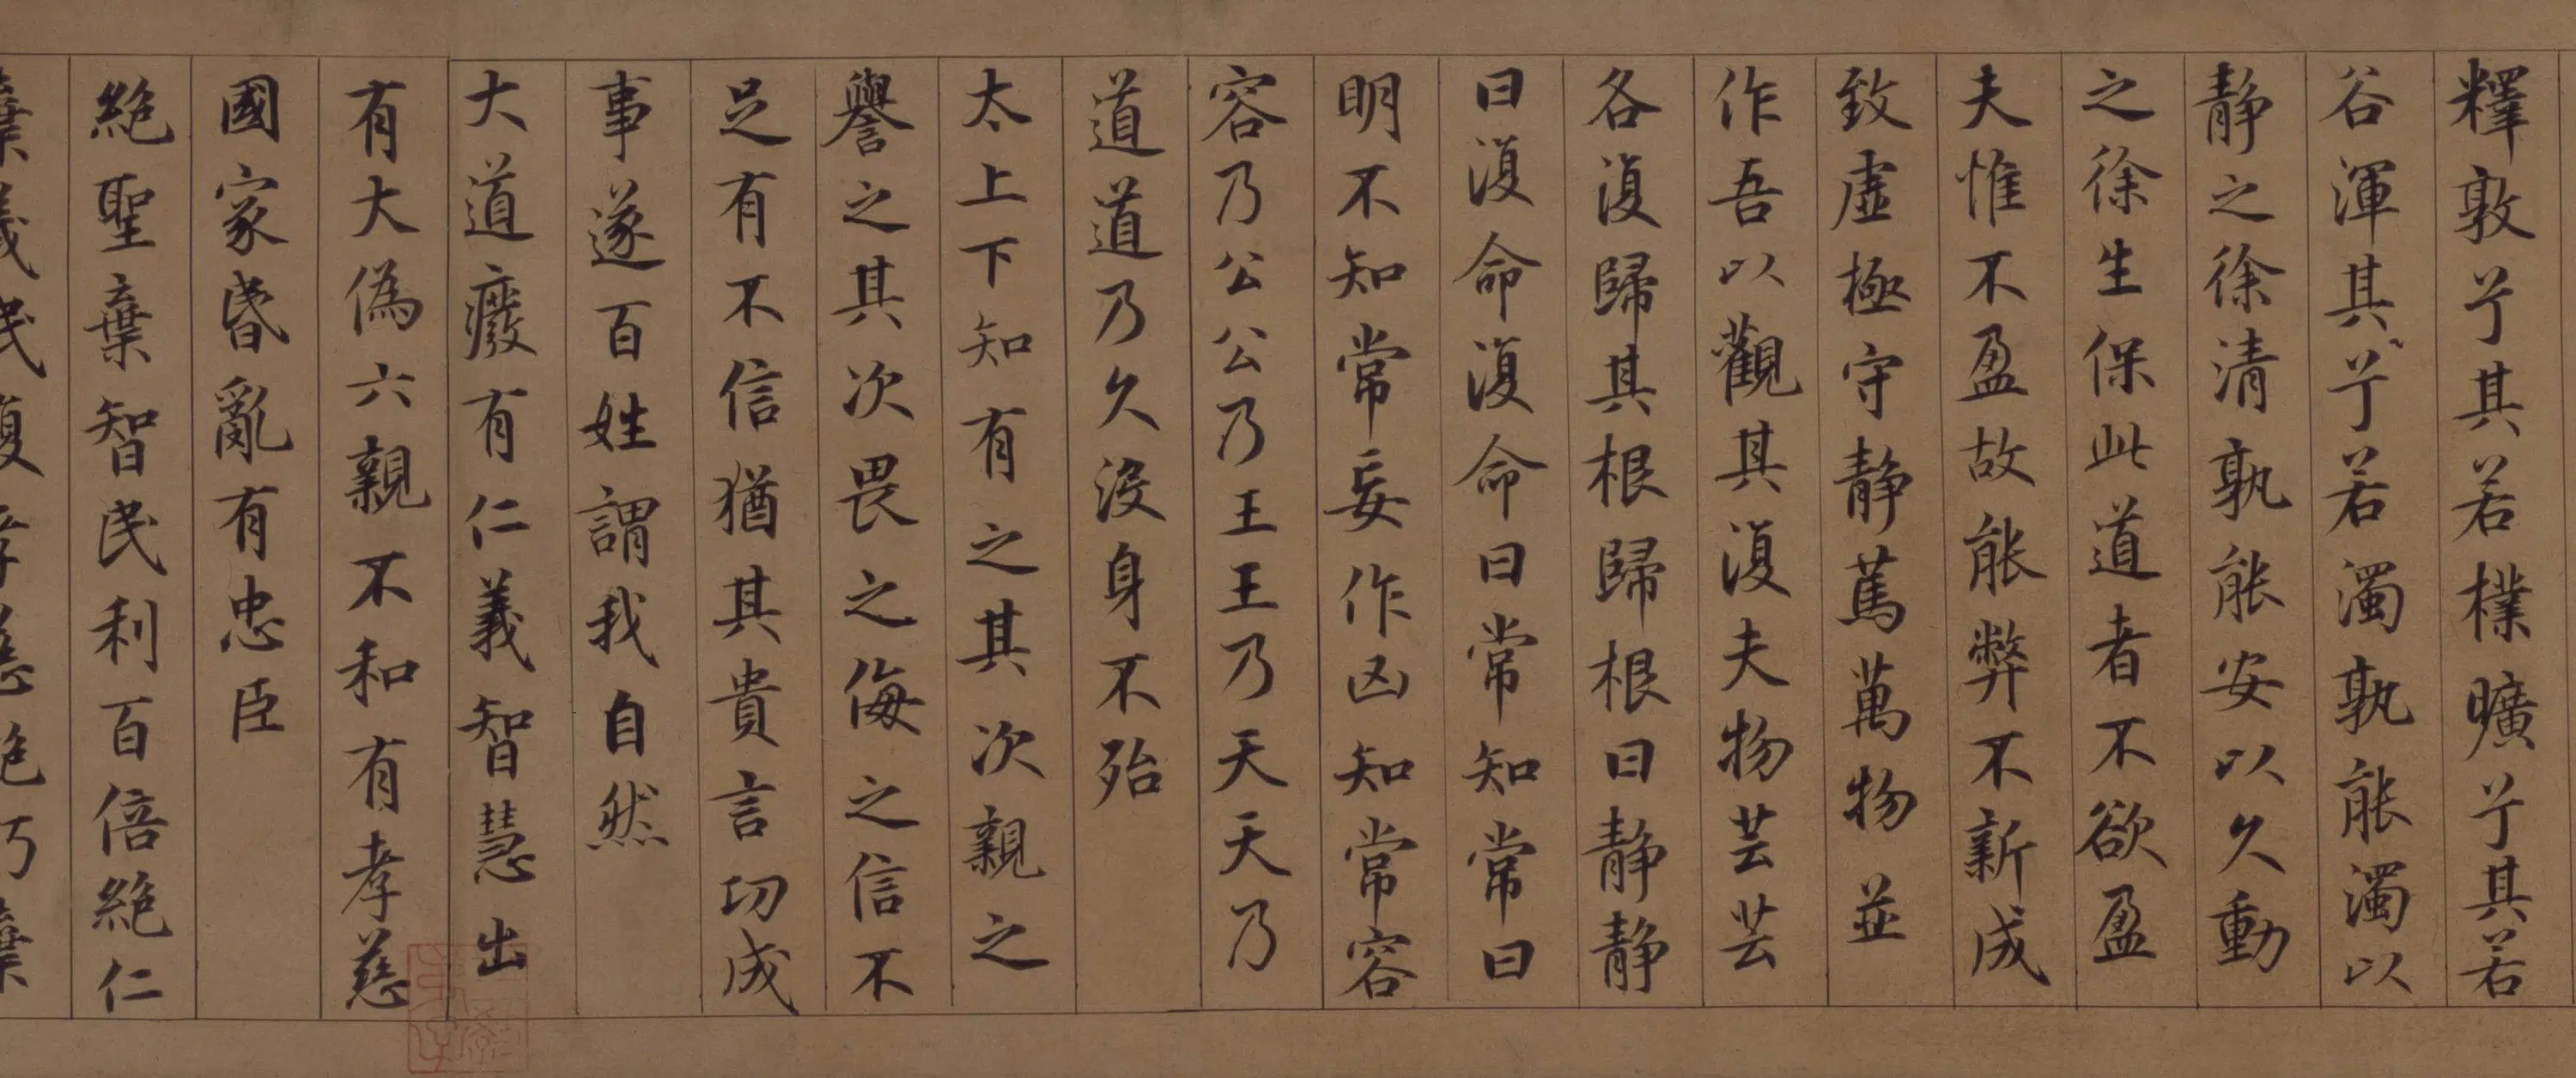 釋敦兮其若樸曠兮其若
谷渾其兮若濁孰能濁以
静之徐清孰能安以久動
之徐生保此道者不欲盈
夫惟不盈故能弊不新成
致虛極守静篤萬物並
作吾以觀其復夫物芸芸
各復歸其根歸根曰静静
曰復命復命曰常知常曰
明不知常妄作凶知常容
容乃公公乃王王乃天天乃
道道乃久没身不殆
太上下知有之其次親之
譽之其次畏之侮之信不
足有不信猶其貴言功成
事遂百姓謂我自然
大道癈有仁義智慧出
有大偽六親不和有孝慈
國家昏亂有忠臣
絶聖棄智民利百倍絶仁
棄義民復孝慈絶巧棄